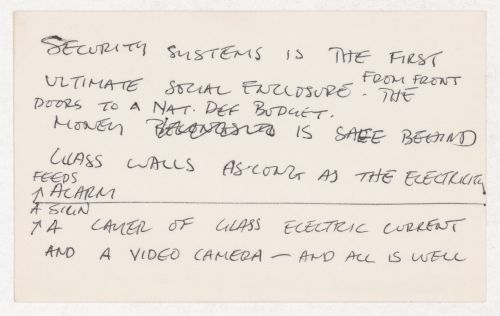 SECURITY SYSTEMS IS THE FIRST
ULTIMATE SOCIAL ENCLOSURE. FROM FRONT
DOORS TO A NAT. DEF BUDGET. THE
MONEY IS SAFE BEHIND
GLASS WALLS AS LONG AS THE ELECTRICITY
FEEDS
↑ ALARM
A SIGN
↑ A LAYER OF GLASS ELECTRIC CURRENT
AND A VIDEO CAMERA — AND ALL IS WELL